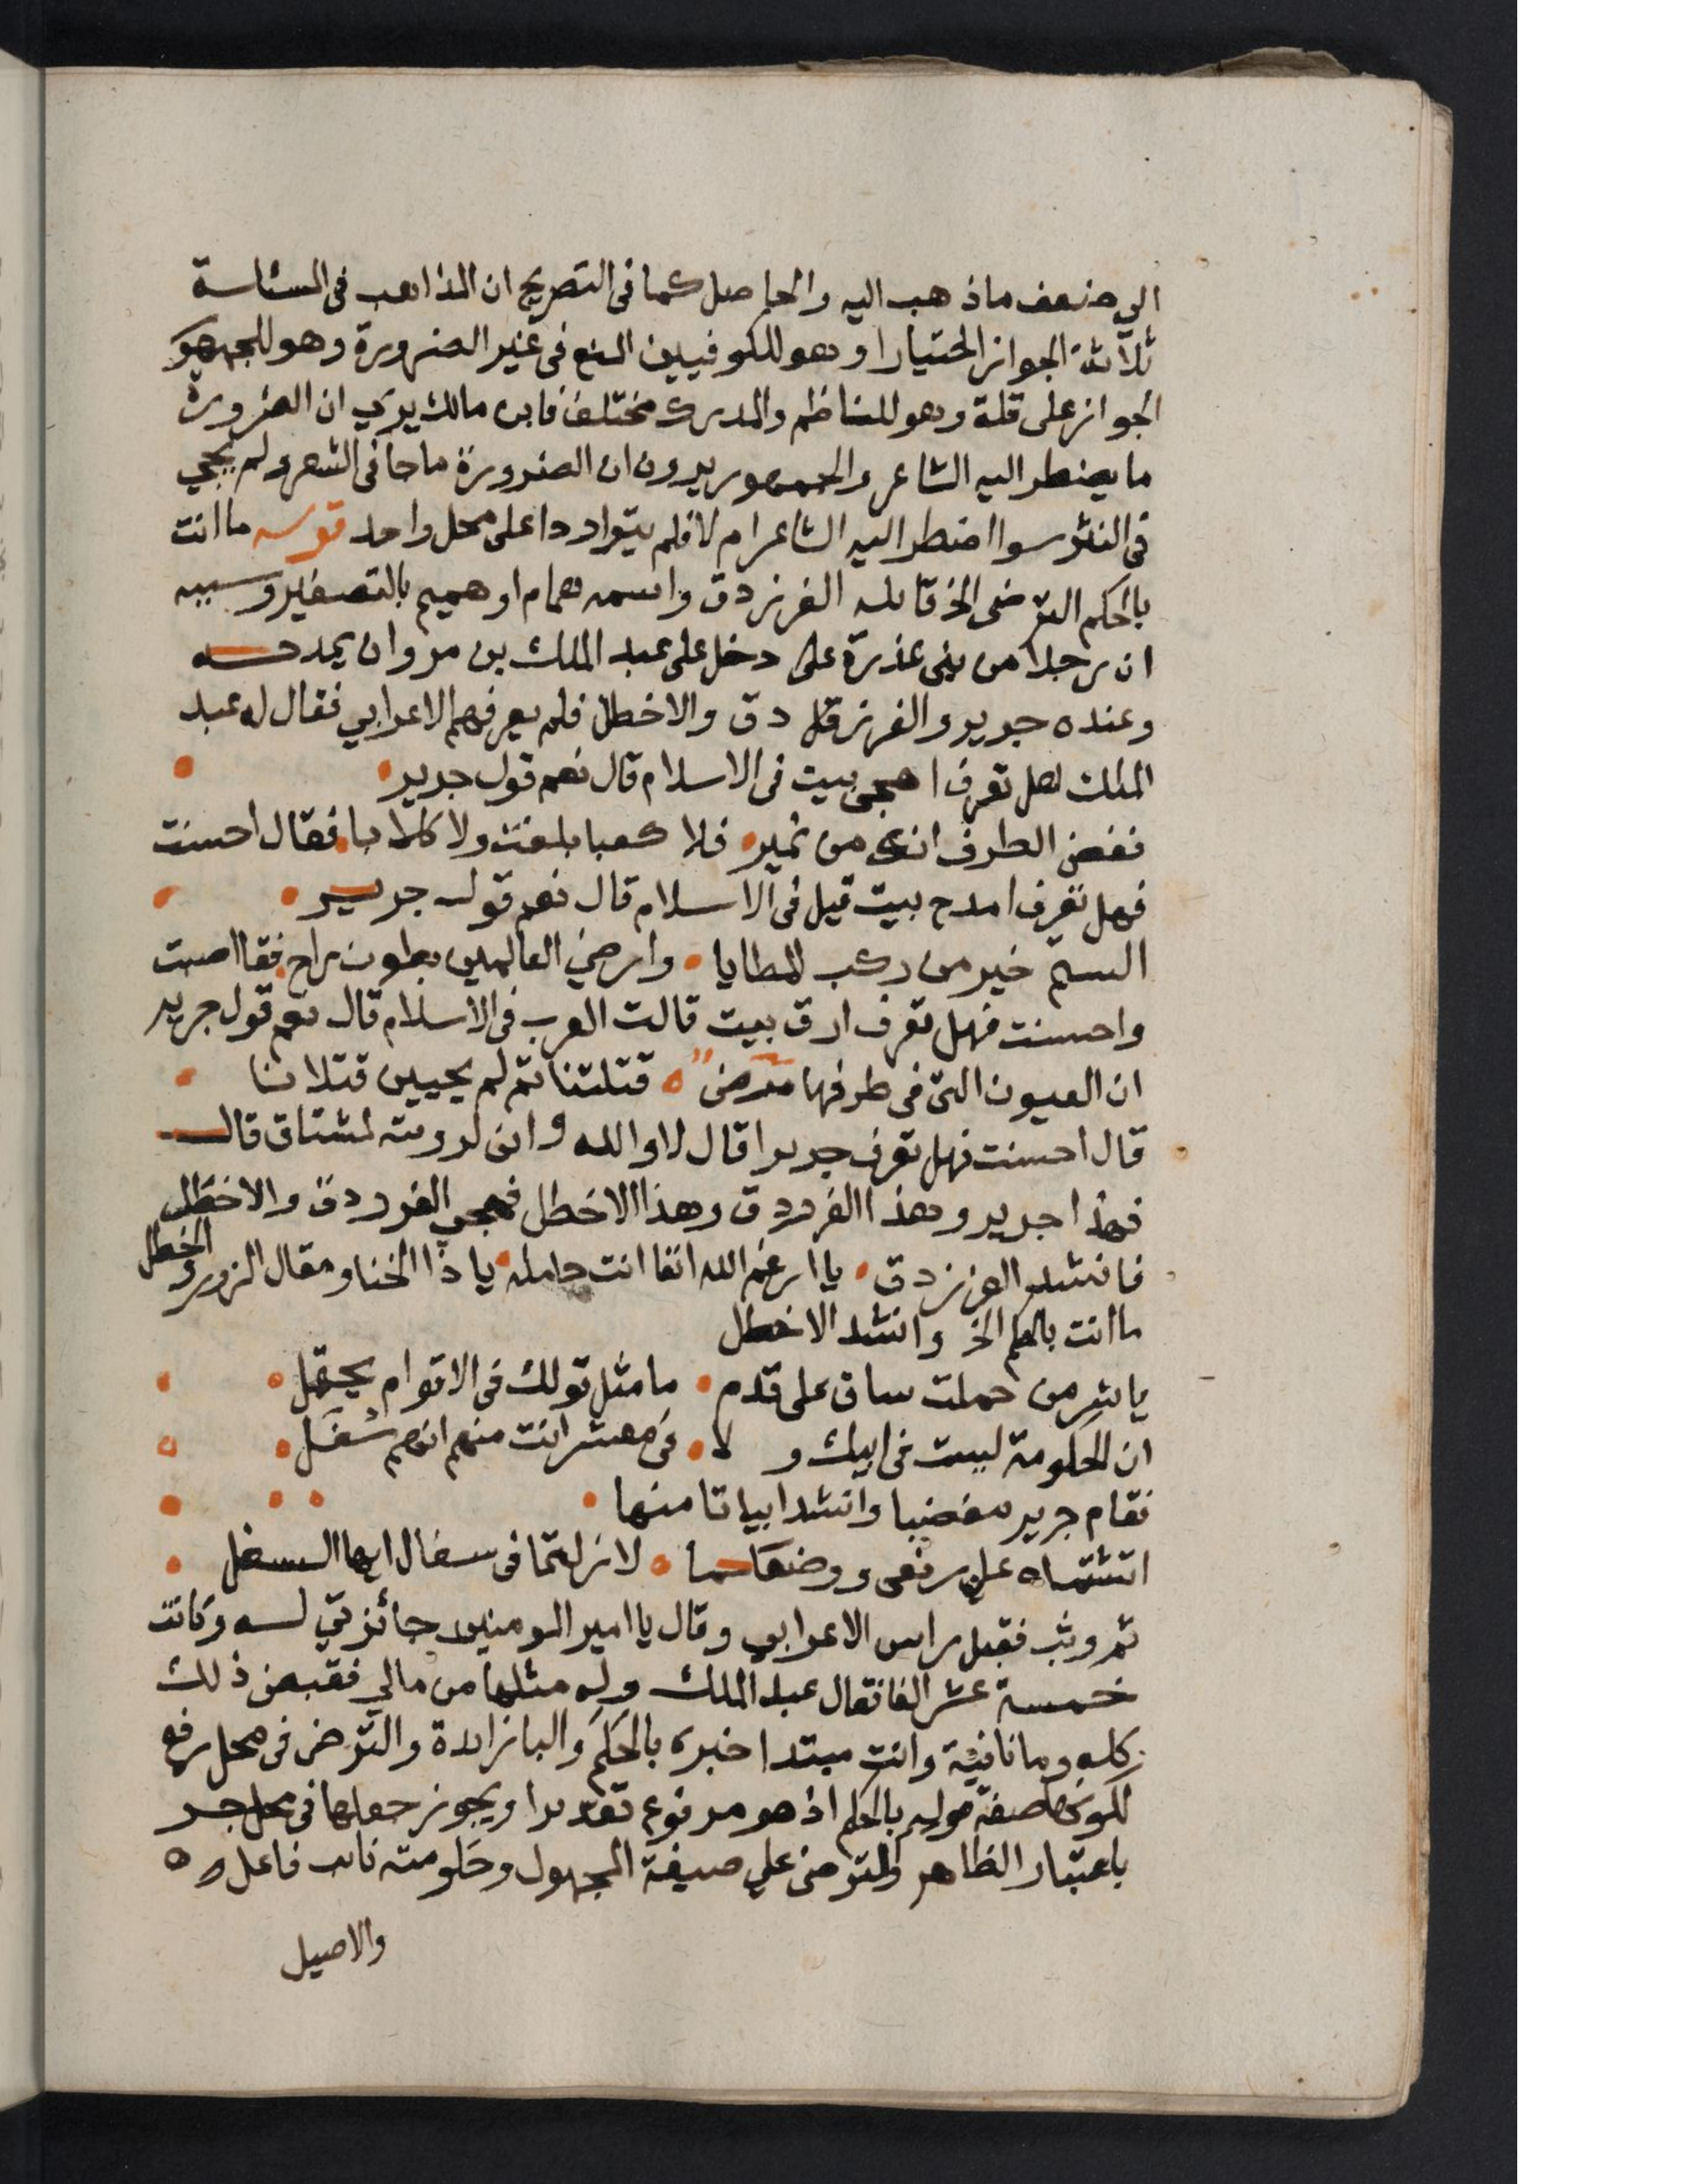 الي ضعف ماذهب اليه والحاصل كما في التصريح ان المذاهب في المسئلسة
ثلاثة الجواز اختيارا وهو للكوفيين المنع في غير الضرورة وهو للجمهور
الجواز على قلة وهو للناظم والمدرك مختلف فابن مالك يري ان الضرورة
ما يضطر اليه الشاعر والجمهور يرون ان الضرورة ما جا في الشعر ولم يجي
في النثر سوا اضطر اليه الشاعر ام لا فلم يتواردا على محل واحد قوله ما انت
بالحكم الترضى الخ قائله الفرزدق واسمه همام او هميم بالتصغير وسببه
ان رجلا من بني عذرة على دخل على عبد الملك بن مروان يمدحه
وعنده جرير والفرزقل دق والاخطل فلم يعرفهم الاعرابي فقال له عبد
الملك هل تعرف اهجى بيت في الاسلام قال نعم قول جرير
فغض الطرف انك من نمير فلا كعبا بلغت ولا كلابا فقال احسنت
فهل تعرف امدح بيت قيل في الاسلام قال نعم قول جرير
الستم خير من ركب المطايا وارضي العالمين بطون راح فقال اصبت
واحسنت فهل تعرف ارق بيت قالت العرب في الاسلام قال نعم قول جرير
ان العيون التي في طرفها مرض قتلتنا ثم لم يحيين قتلانا
قال احسنت فهل تعرف جريرا قال لا والله واني لرويته لمشتاق قال
فهذا جرير وهذا الفرزدق وهذا الاخطل فهجي الفرزدق والاخطل
فانشد الفرزدق يا ارغم الله انفا انت حامله يا ذا الخنا ومقال الزور والخطل
ما انت بالحكم الخ وانشد الاخطل
يا شر من حملت ساق على قدم ما مثل قولك في الاقوام يحتمل
ان الحكومة ليست في ابيك و لا في معشر انت منهم انهم سفل
فقام جرير مغضبا وانشد ابياتا منها
اتشتماه علي رفعي ووضعكما لا زلتما في سفال ايها السفل
ثم وثب فقبل راس الاعرابي وقال يا امير المومنين جائزتي له وكانت
خمسة عشر الفا فقال عبد الملك وله مثلها من مالي فقبض ذلك
كله وما نافية وانت مبتدا خبره بالحكم والبا زايدة والترضى في محل رفع
لكونها صفة قوله بالحكم اذ هو مرفوع تقديرا ويجوز جعلها في محل جر
باعتبار الظاهر والترضى علي صيغة المجهول وحكومته نائب فاعله
والاصيل